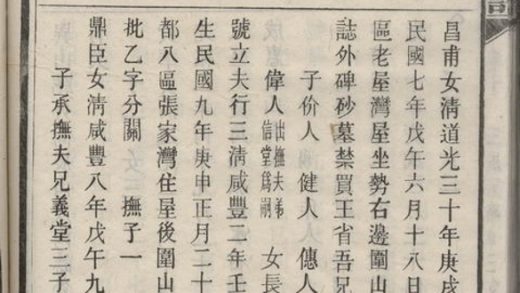 昌甫女清道光三十年庚戌
民國七年戊午六月十八日
區老屋灣屋坐勢右邊圍山
誌外碑砂墓禁買王省吾兄
子价人 健人 傳人
偉人出撫夫弟信堂為嗣 女長
號立夫行三清咸豐二年壬
生民國九年庚申正月二十
都八區張家灣住屋後圍山
批乙字分關 撫子一
鼎臣女清咸豐八年戊午九
子承撫夫兄義堂三子